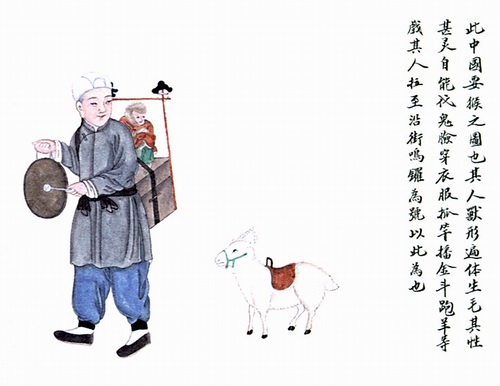 此中國耍猴之圖也其人獸形遍体生毛其性
甚灵自能代鬼臉穿衣服扒竿播金斗跑羊等
戲其人拉至沿街鳴鑼為號以此為也